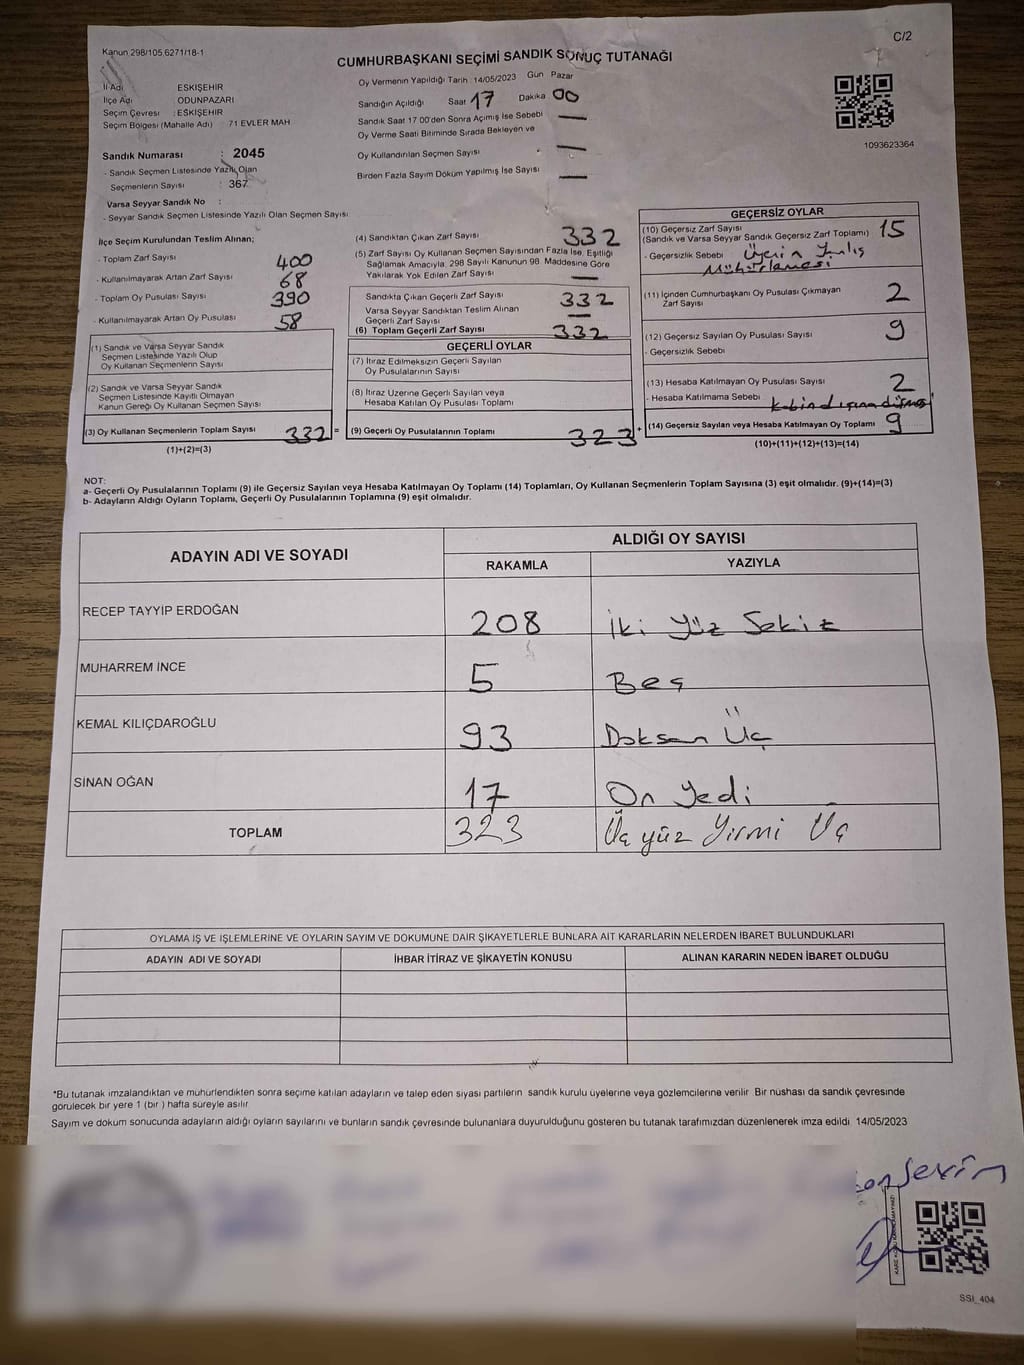 Kanun 298/105,6271/18-1
C/2
CUMHURBAŞKANI SEÇİMİ SANDIK SONUÇ TUTANAĞI
İl Adı ESKİŞEHİR
İlçe Adı ODUNPAZARI
Seçim Çevresi : ESKİŞEHİR
Seçim Bölgesi (Mahalle Adı) 71 EVLER MAH
Sandık Numarası : 2045
- Sandık Seçmen Listesinde Yazılı Olan
Seçmenlerin Sayısı : 367
Varsa Seyyar Sandık No :
- Seyyar Sandık Seçmen Listesinde Yazılı Olan Seçmen Sayısı
Oy Vermenin Yapıldığı Tarih : 14/05/2023 Gün Pazar
Sandığın Açıldığı Saat 17 Dakika 00
Sandık Saat 17 00'den Sonra Açımış İse Sebebi —
Oy Verme Saati Bitiminde Sırada Bekleyen ve
Oy Kullandırılan Seçmen Sayısı —
Birden Fazla Sayım Döküm Yapılmış İse Sayısı —
1093623364
İlçe Seçim Kurulundan Teslim Alınan;
- Toplam Zarf Sayısı 400
- Kullanılmayarak Artan Zarf Sayısı 68
- Toplam Oy Pusulası Sayısı 390
- Kullanılmayarak Artan Oy Pusulası 58
(1) Sandık ve Varsa Seyyar Sandık
Seçmen Listesinde Yazılı Olup
Oy Kullanan Seçmenlerin Sayısı
(2) Sandık ve Varsa Seyyar Sandık
Seçmen Listesinde Kayıtlı Olmayan
Kanun Gereği Oy Kullanan Seçmen Sayısı
(3) Oy Kullanan Seçmenlerin Toplam Sayısı 332 =
(1)+(2)=(3)
(4) Sandıktan Çıkan Zarf Sayısı 332
(5) Zarf Sayısı Oy Kullanan Seçmen Sayısından Fazla İse, Eşitliği
Sağlamak Amacıyla, 298 Sayılı Kanunun 98. Maddesine Göre
Yakılarak Yok Edilen Zarf Sayısı —
Sandıkta Çıkan Geçerli Zarf Sayısı 332
Varsa Seyyar Sandıktan Teslim Alınan
Geçerli Zarf Sayısı —
(6) Toplam Geçerli Zarf Sayısı 332
GEÇERLİ OYLAR
(7) İtiraz Edilmeksizin Geçerli Sayılan
Oy Pusulalarının Sayısı
(8) İtiraz Üzerine Geçerli Sayılan veya
Hesaba Katılan Oy Pusulası Toplamı
(9) Geçerli Oy Pusulalarının Toplamı 323 +
GEÇERSİZ OYLAR
(10) Geçersiz Zarf Sayısı
(Sandık ve Varsa Seyyar Sandık Geçersiz Zarf Toplamı) 15
- Geçersizlik Sebebi Üyenin Yanlış
Mühürlemesi
(11) İçinden Cumhurbaşkanı Oy Pusulası Çıkmayan
Zarf Sayısı 2
(12) Geçersiz Sayılan Oy Pusulası Sayısı 9
- Geçersizlik Sebebi
(13) Hesaba Katılmayan Oy Pusulası Sayısı 2
- Hesaba Katılmama Sebebi
(14) Geçersiz Sayılan veya Hesaba Katılmayan Oy Toplamı 9
(10)+(11)+(12)+(13)=(14)
NOT:
a- Geçerli Oy Pusulalarının Toplamı (9) ile Geçersiz Sayılan veya Hesaba Katılmayan Oy Toplamı (14) Toplamları, Oy Kullanan Seçmenlerin Toplam Sayısına (3) eşit olmalıdır. (9)+(14)=(3)
b- Adayların Aldığı Oyların Toplamı, Geçerli Oy Pusulalarının Toplamına (9) eşit olmalıdır.
ADAYIN ADI VE SOYADI ALDIĞI OY SAYISI
RAKAMLA YAZIYLA
RECEP TAYYİP ERDOĞAN 208 İki Yüz Sekiz
MUHARREM İNCE 5 Beş
KEMAL KILIÇDAROĞLU 93 Doksan Üç
SİNAN OĞAN 17 On Yedi
TOPLAM 323 Üç yüz Yirmi Üç
OYLAMA İŞ VE İŞLEMLERİNE VE OYLARIN SAYIM VE DÖKÜMÜNE DAİR ŞİKAYETLERLE BUNLARA AİT KARARLARIN NELERDEN İBARET BULUNDUKLARI
ADAYIN ADI VE SOYADI İHBAR İTİRAZ VE ŞİKAYETİN KONUSU ALINAN KARARIN NEDEN İBARET OLDUĞU
*Bu tutanak imzalandıktan ve mühürlendikten sonra seçime katılan adayların ve talep eden siyasi partilerin sandık kurulu üyelerine veya gözlemcilerine verilir Bir nüshası da sandık çevresinde
görülecek bir yere 1 (bir ) hafta süreyle asılır.
Sayım ve döküm sonucunda adayların aldığı oyların sayılarını ve bunların sandık çevresinde bulunanlara duyurulduğunu gösteren bu tutanak tarafımızdan düzenlenerek imza edildi 14/05/2023
SSI_404